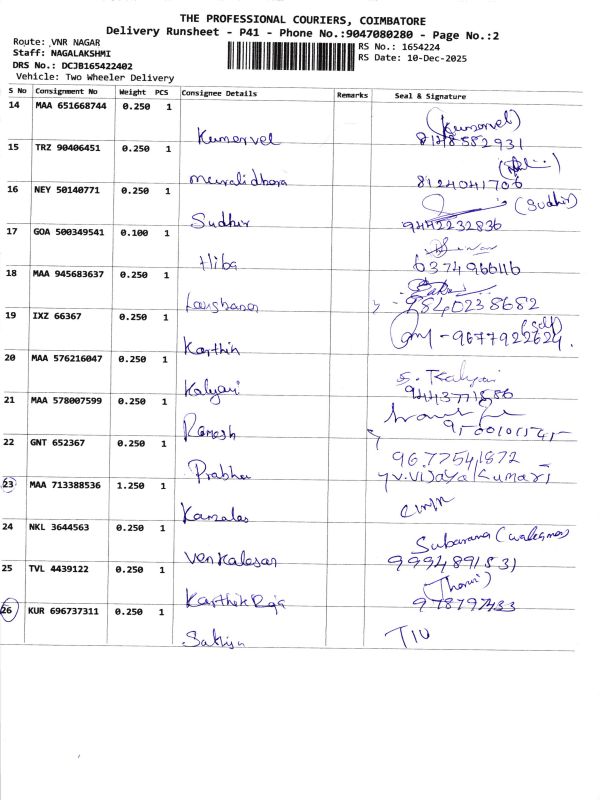 THE PROFESSIONAL COURIERS, COIMBATORE
Delivery Runsheet - P41 - Phone No.:9047080280 - Page No.:2
Route: VNR NAGAR
Staff: NAGALAKSHMI
DRS No.: DCJB165422402
Vehicle: Two Wheeler Delivery
RS No.: 1654224
RS Date: 10-Dec-2025
S No Consignment No Weight PCS Consignee Details Remarks Seal & Signature
14 MAA 651668744 0.250 1
Kumervel (Kumervel) 8148552931
15 TRZ 90406451 0.250 1
muralidhara 8124041706
16 NEY 50140771 0.250 1
Sudhir (Sudhir) 9442232836
17 GOA 500349541 0.100 1
Hiba
18 MAA 945683637 0.250 1
9840238682
19 IXZ 66367 0.250 1
Karthik (self) - 9677922624.
20 MAA 576216047 0.250 1
Kalyani S. Kalyani
21 MAA 578007599 0.250 1
Ramesh
22 GNT 652367 0.250 1
Prabhu 9677541872
23 MAA 713388536 1.250 1
Y.V.Vijaya Kumari
Kamalas
24 NKL 3644563 0.250 1
Venkalesan 9994891531
25 TVL 4439122 0.250 1
Karthik Raja
26 KUR 696737311 0.250 1